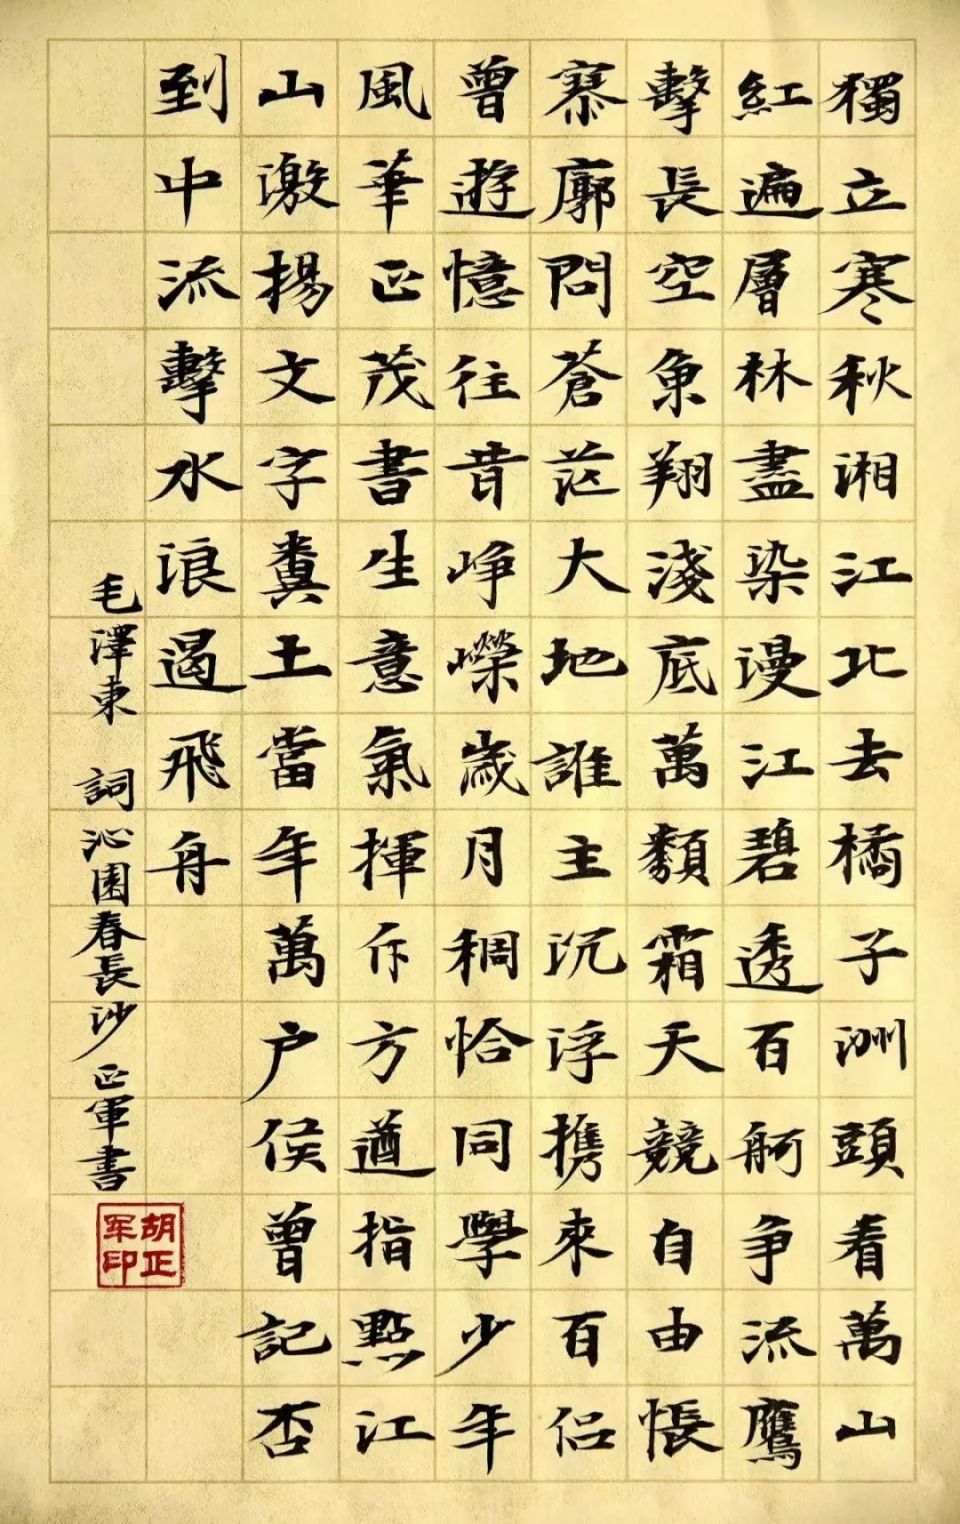 獨立寒秋湘江北去橘子洲頭看萬山
紅遍層林盡染漫江碧透百舸争流鷹
擊長空魚翔淺底萬類霜天競自由悵
寥廓問蒼茫大地誰主沉浮携來百侣
曾遊憶往昔崢嶸歲月稠恰同學少年
風華正茂書生意氣揮斥方遒指點江
山激揚文字糞土當年萬户侯曾記否
到中流擊水浪遏飛舟
毛澤東 詞 沁園春長沙 正軍書
胡正军印